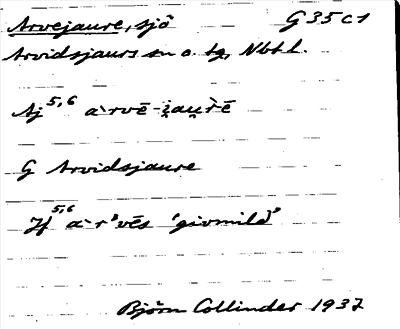 Arvejaure, sjö G 35 c 1
Arvidsjaurs sn o. tg, Nbtl.
Aj 5,6 àrvē-i̯au̯rē
G Arvidsjaure
Jf 5,6 àr'vēs 'givmild'
Björn Collinder 1937